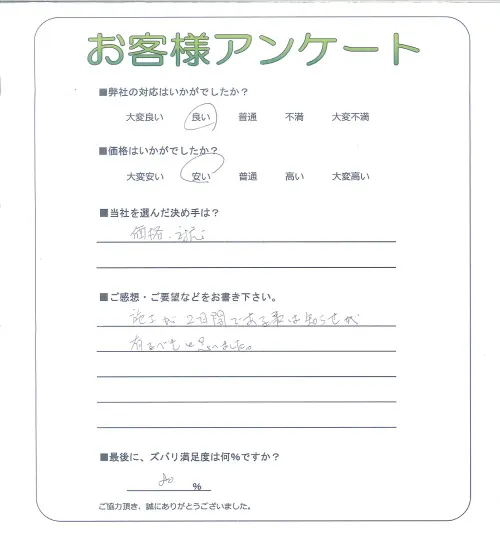 お客様アンケート
■弊社の対応はいかがでしたか？
大変良い 良い 普通 不満 大変不満
■価格はいかがでしたか？
大変安い 安い 普通 高い 大変高い
■当社を選んだ決め手は？
価格・対応
■ご感想・ご要望などをお書き下さい。
施工が2日間である事は知らせが
有るべきと思いました。
■最後に、ズバリ満足度は何％ですか？
80 ％
ご協力頂き、誠にありがとうございました。